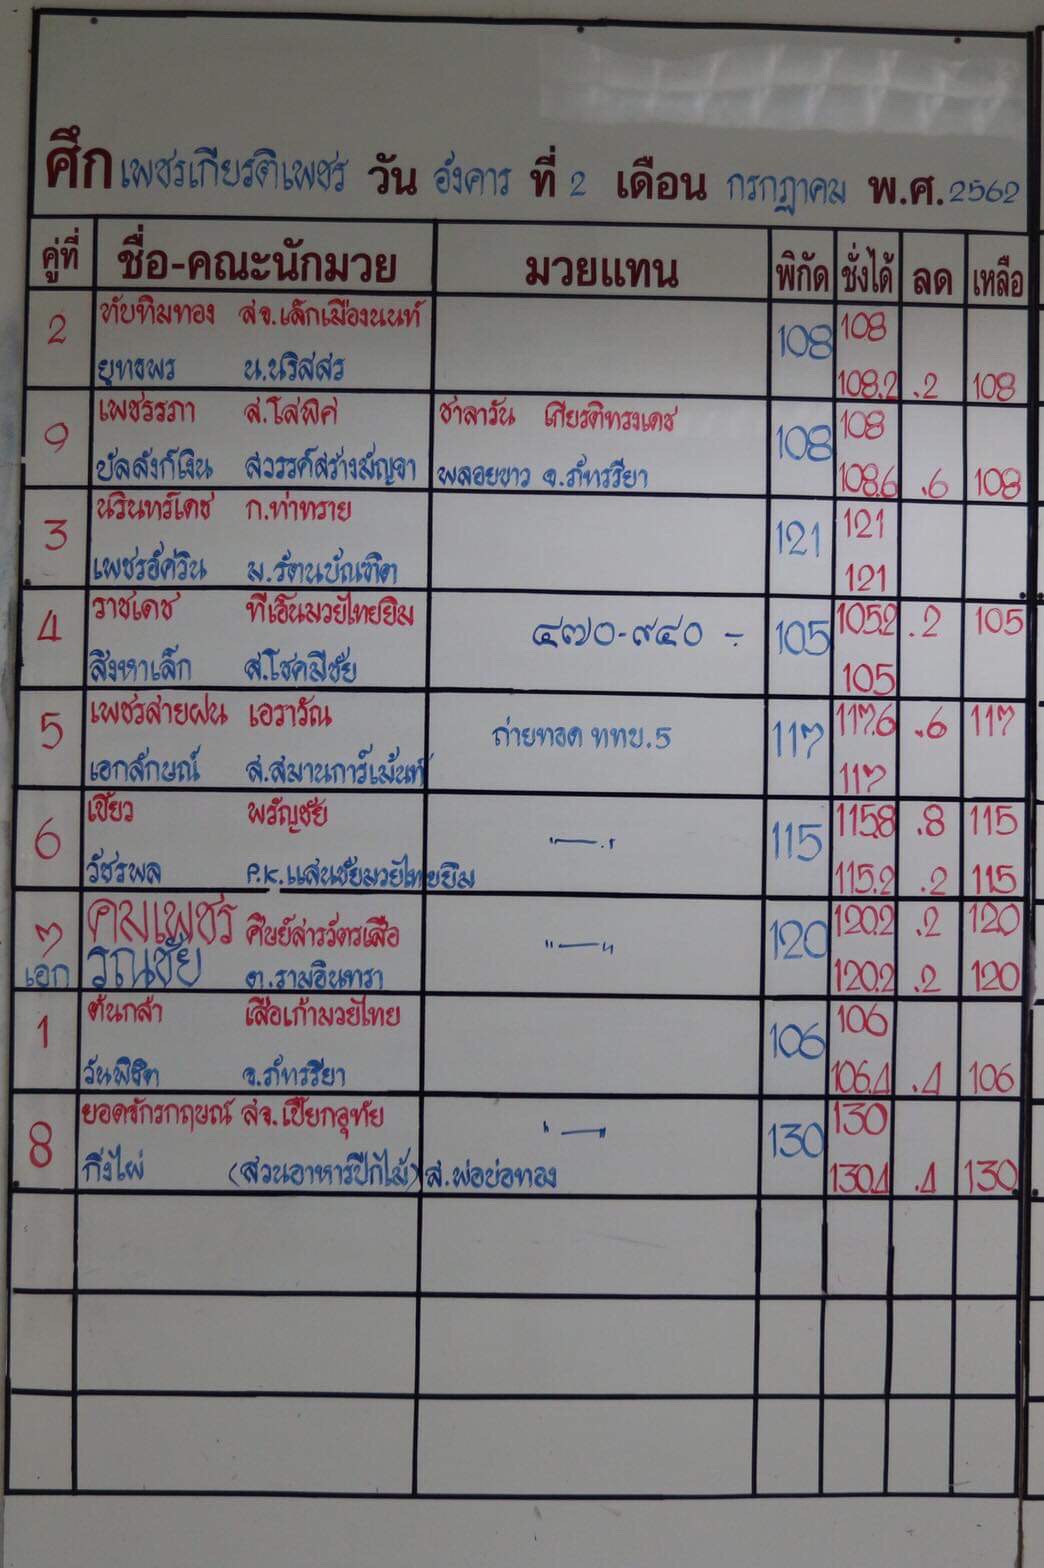 ศึก เพชรเกียรติเพชร วัน อังคาร ที่ 2 เดือน กรกฎาคม พ.ศ. 2562
คู่ที่ ชื่อ-คณะนักมวย มวยแทน พิกัด ชั่งได้ ลด เหลือ
2 ทับทิมทอง สจ.เล็กเมืองนนท์ 108 108
ยุทธพร น.นริสสร 108.2 .2 108
9 เพชรรภา ส.โสพิศ ชาลาวัน เกียรติทรงเดช 108 108
บัลลังก์เงิน สวรรค์สร้างสัญจา พลอยขาว จ.ภัทรรียา 108.6 .6 108
3 นรินทร์เดช ก.ท่าทราย 121 121
เพชรอัศวิน ม.รัตนบัณฑิต 121
4 ราชเดช ทีเอ็นมวยไทยยิม ๔๗๐-๙๔๐ - 105 105.2 .2 105
สิงหาเล็ก ส.โชคมีชัย 105
5 เพชรสายฝน เอวารัณ ถ่ายทอด ททบ.5 117 117.6 .6 117
เอกลักษณ์ ส.สมานการ์เม้นท์ 117
6 เขี้ยว พรัญชัย "—" 115 115.8 .8 115
วัชรพล P.K.แสนชัยมวยไทยยิม 115.2 .2 115
7 คมเพชร ศิษย์สารวัตรเสือ "—" 120 120.2 .2 120
เอก รณชัย ต.รามอินทรา 120.2 .2 120
1 ต้นกล้า เสือเก้ามวยไทย 106 106
วันพิชิต จ.ภัทรรียา 106.4 .4 106
8 ยอดจักรกฤษณ์ สจ.เปี๊ยกอุทัย "—" 130 130
กิ่งไผ่ (สวนอาหารปีกไม้) ส.พ่อบ่อทอง 130.4 .4 130